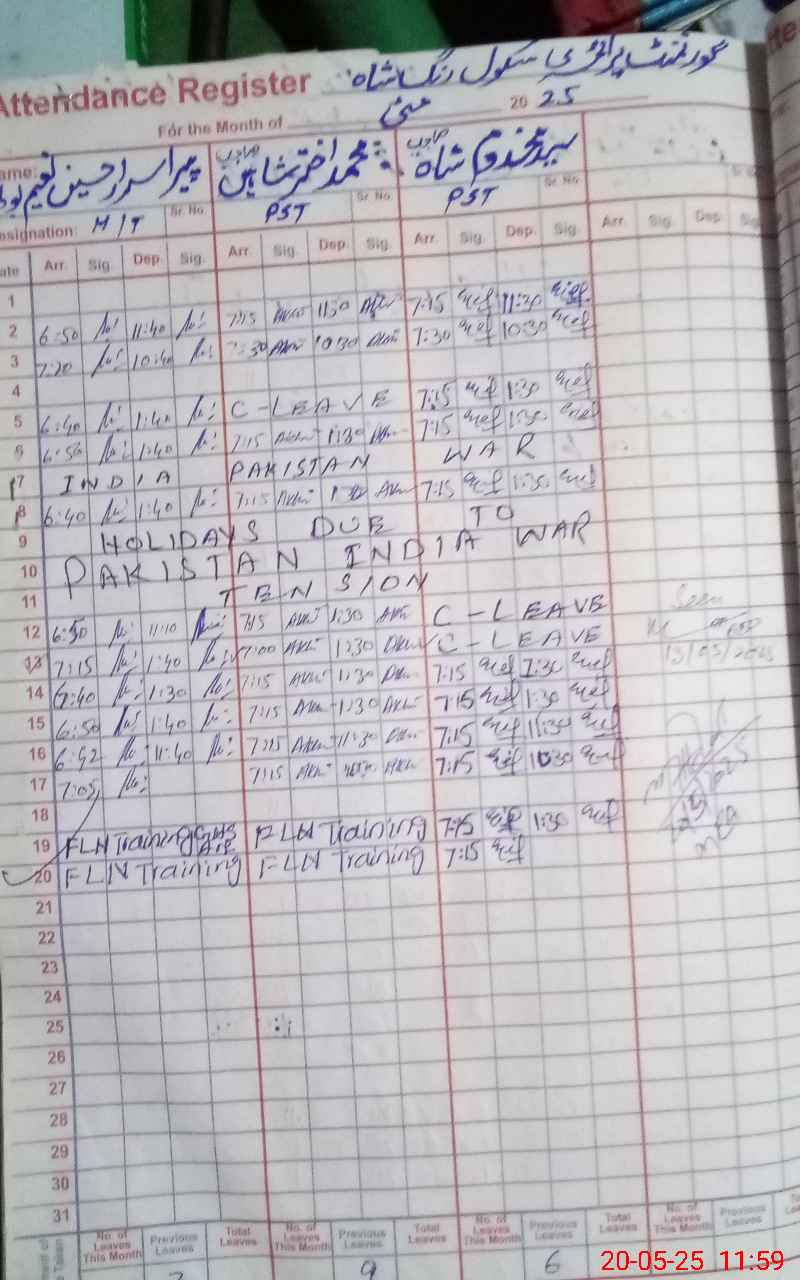 گورنمنٹ پرائمری سکول رنگ شاہ
Attendance Register
For the Month of مئی 20 25
ame: پیر اسرار حسین نعیم محمد اختر شاہین صاحب سید مخدوم شاہ صاحب
esignation: H/T Sr. No. PST Sr. No. PST Sr. No.
ate Arr. Sig. Dep. Sig. Arr. Sig. Dep. Sig. Arr. Sig. Dep. Sig. Arr. Sig. Dep. Sig.
1
2 6:50 11:40 7:15 11:30 7:15 11:30
3 7:20 10:40 7:30 10:30 7:30 10:30
4
5 6:40 1:40 C-LEAVE 7:15 1:30
6 6:50 1:40 7:15 1:30 7:15 1:30
7 INDIA PAKISTAN WAR
8 6:40 1:40 7:15 1:30 7:15 1:30
9 HOLIDAYS DUE TO
10 PAKISTAN INDIA WAR
11 TENSION
12 6:50 11:10 7:15 1:30 C-LEAVE
13 7:15 1:40 7:00 1:30 C-LEAVE Seen
13/05/2025
14 6:40 1:30 7:15 1:30 7:15 1:30
15 6:50 1:40 7:15 1:30 7:15 1:30
16 6:52 11:40 7:15 11:30 7:15 11:30
17 7:05 7:15 7:15 10:30
18
19 FLN Training FLN Training 7:15 1:30
20 FLN Training FLN Training 7:15
21
22
23
24
25
26
27
28
29
30
31
No. of Leaves This Month Previous Leaves Total Leaves No. of Leaves This Month Previous Leaves Total Leaves No. of Leaves This Month Previous Leaves Total Leaves No. of Leaves This Month Previous Leaves
9 6
20-05-25 11:59